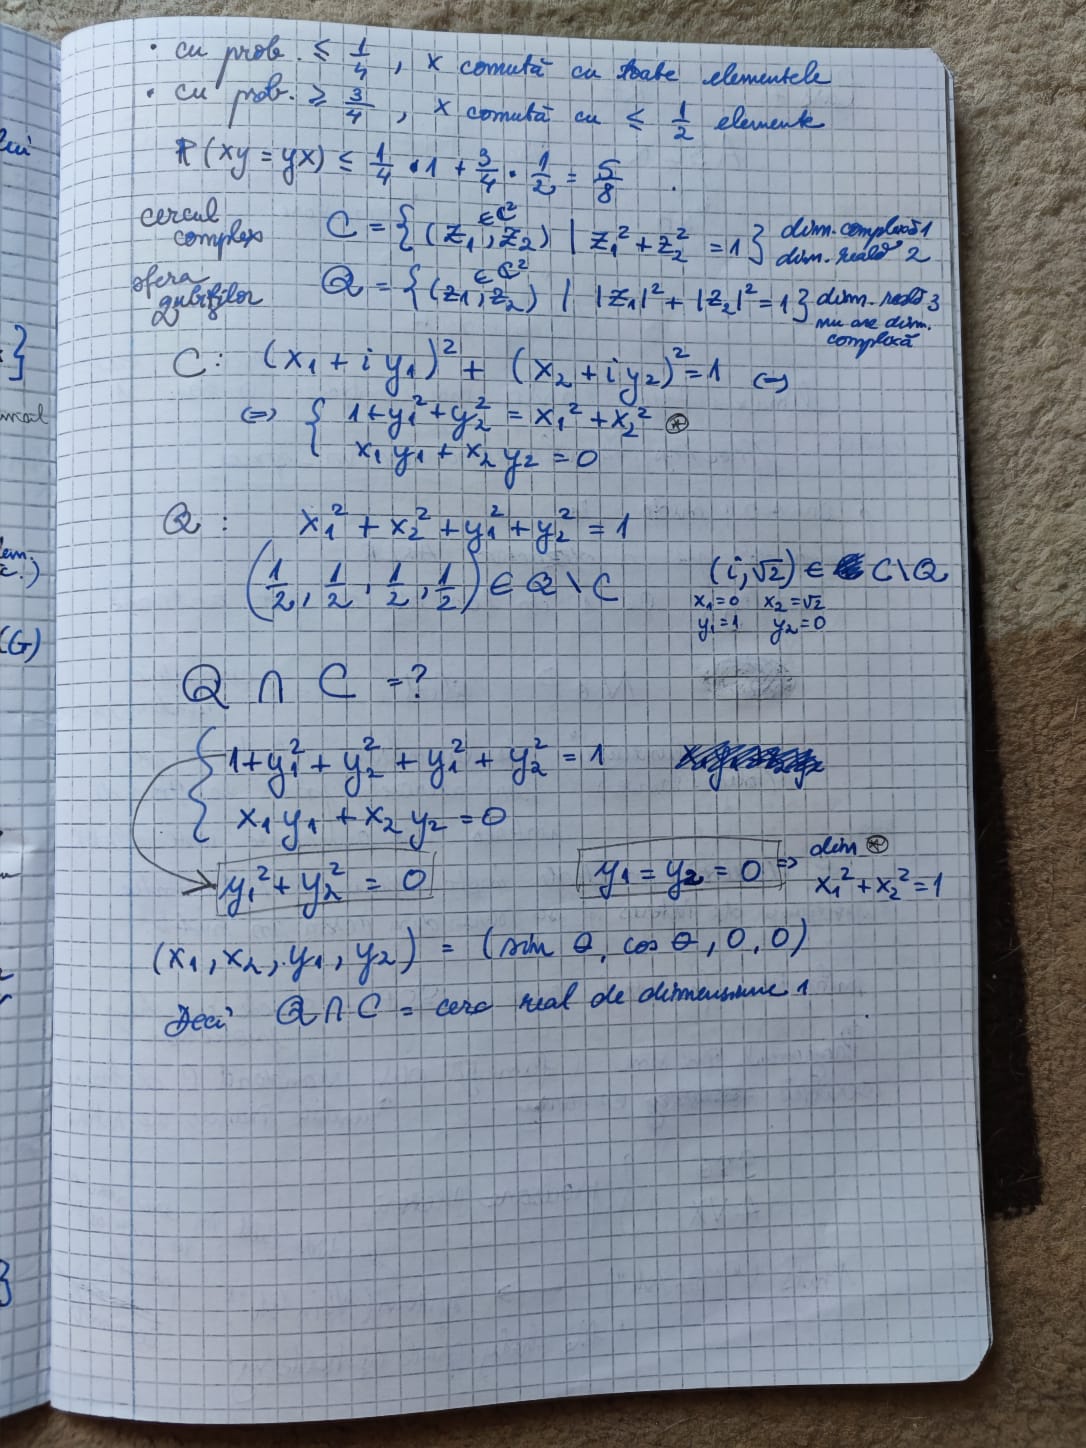 • cu prob. ≤ 1/4, x comută cu toate elementele
• cu prob. ≥ 3/4, x comută cu ≤ 1/2 elemente
P(xy = yx) ≤ 1/4 · 1 + 3/4 · 1/2 = 5/8.
cercul complex C = {(z₁, z₂) ∈ ℂ² | z₁² + z₂² = 1} dim. complexă 1
dim. reală 2
sfera qubiților Q = {(z₁, z₂) ∈ ℂ² | |z₁|² + |z₂|² = 1} dim. reală 3
nu are dim. complexă
C: (x₁ + i y₁)² + (x₂ + i y₂)² = 1 ⇔
⇔ { 1 + y₁² + y₂² = x₁² + x₂² ⊛
x₁ y₁ + x₂ y₂ = 0
Q: x₁² + x₂² + y₁² + y₂² = 1
(1/2, 1/2, 1/2, 1/2) ∈ Q \ C
(i, √2) ∈ C \ Q
x₁ = 0 x₂ = √2
y₁ = 1 y₂ = 0
Q ∩ C = ?
{ 1 + y₁² + y₂² + y₁² + y₂² = 1
x₁ y₁ + x₂ y₂ = 0
y₁² + y₂² = 0
y₁ = y₂ = 0 ⇒ din ⊛ x₁² + x₂² = 1
(x₁, x₂, y₁, y₂) = (sin θ, cos θ, 0, 0)
Deci Q ∩ C = cerc real de dimensiune 1